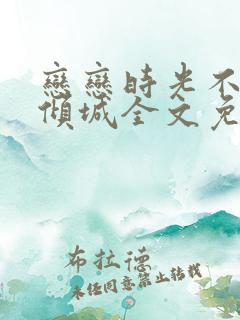 戀戀時光不
傾城全文免
布拉德
未经同意禁止转载